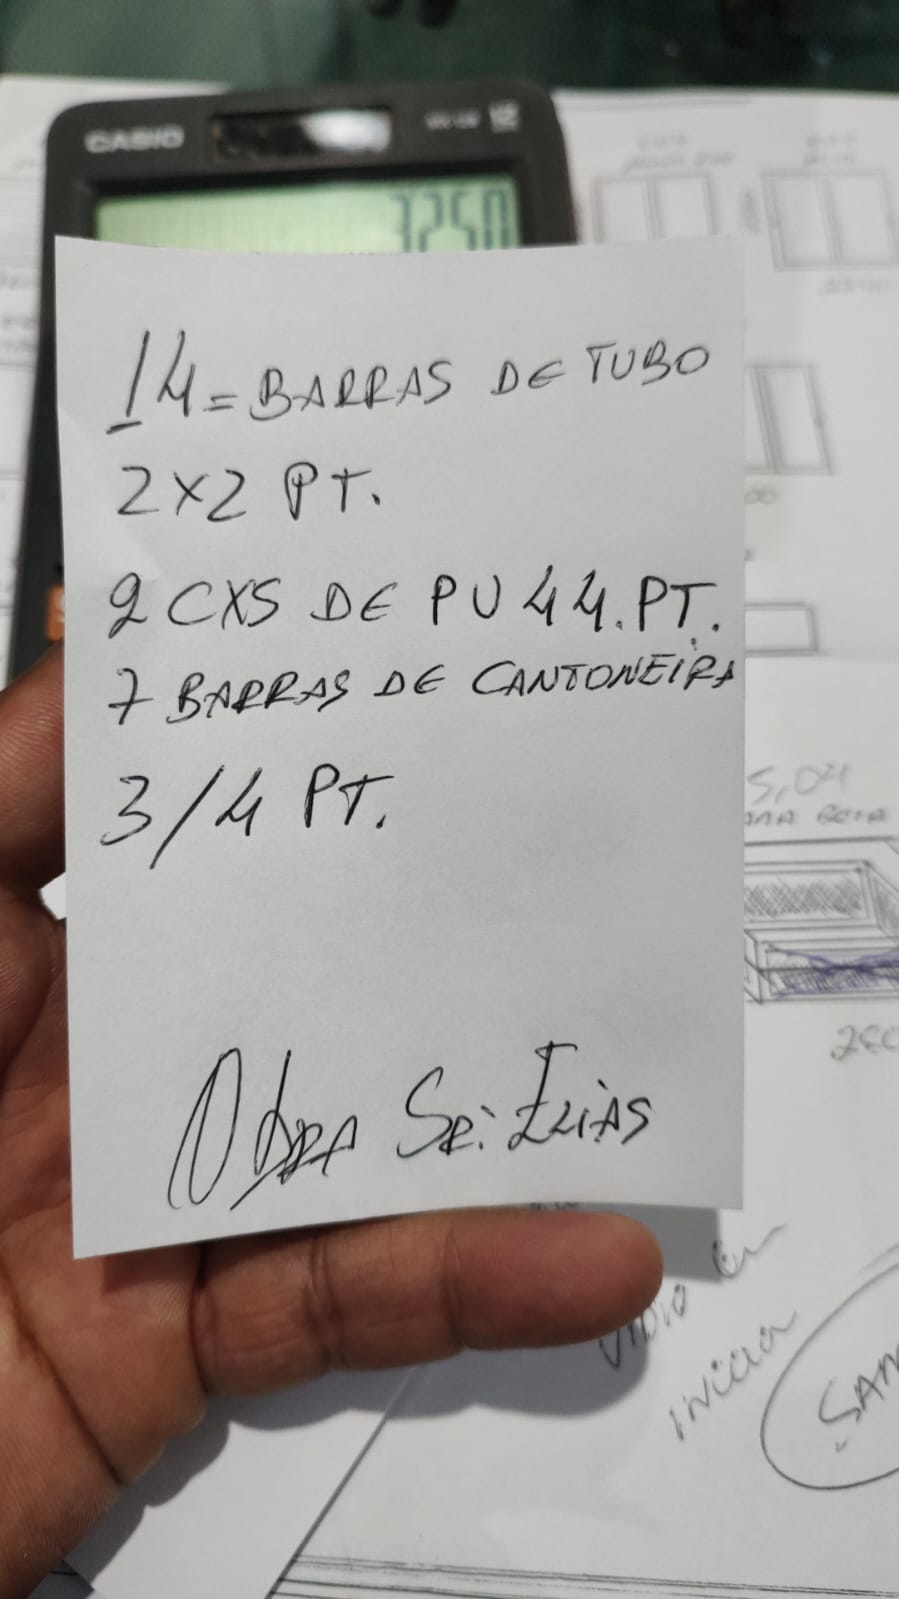 CASIO
3250
14 = BARRAS DE TUBO
2X2 PT.
2 CXS DE PU 44. PT.
7 BARRAS DE CANTONEIRA
3/4 PT.
Obra Sr: Elias
5,04
INICIAR